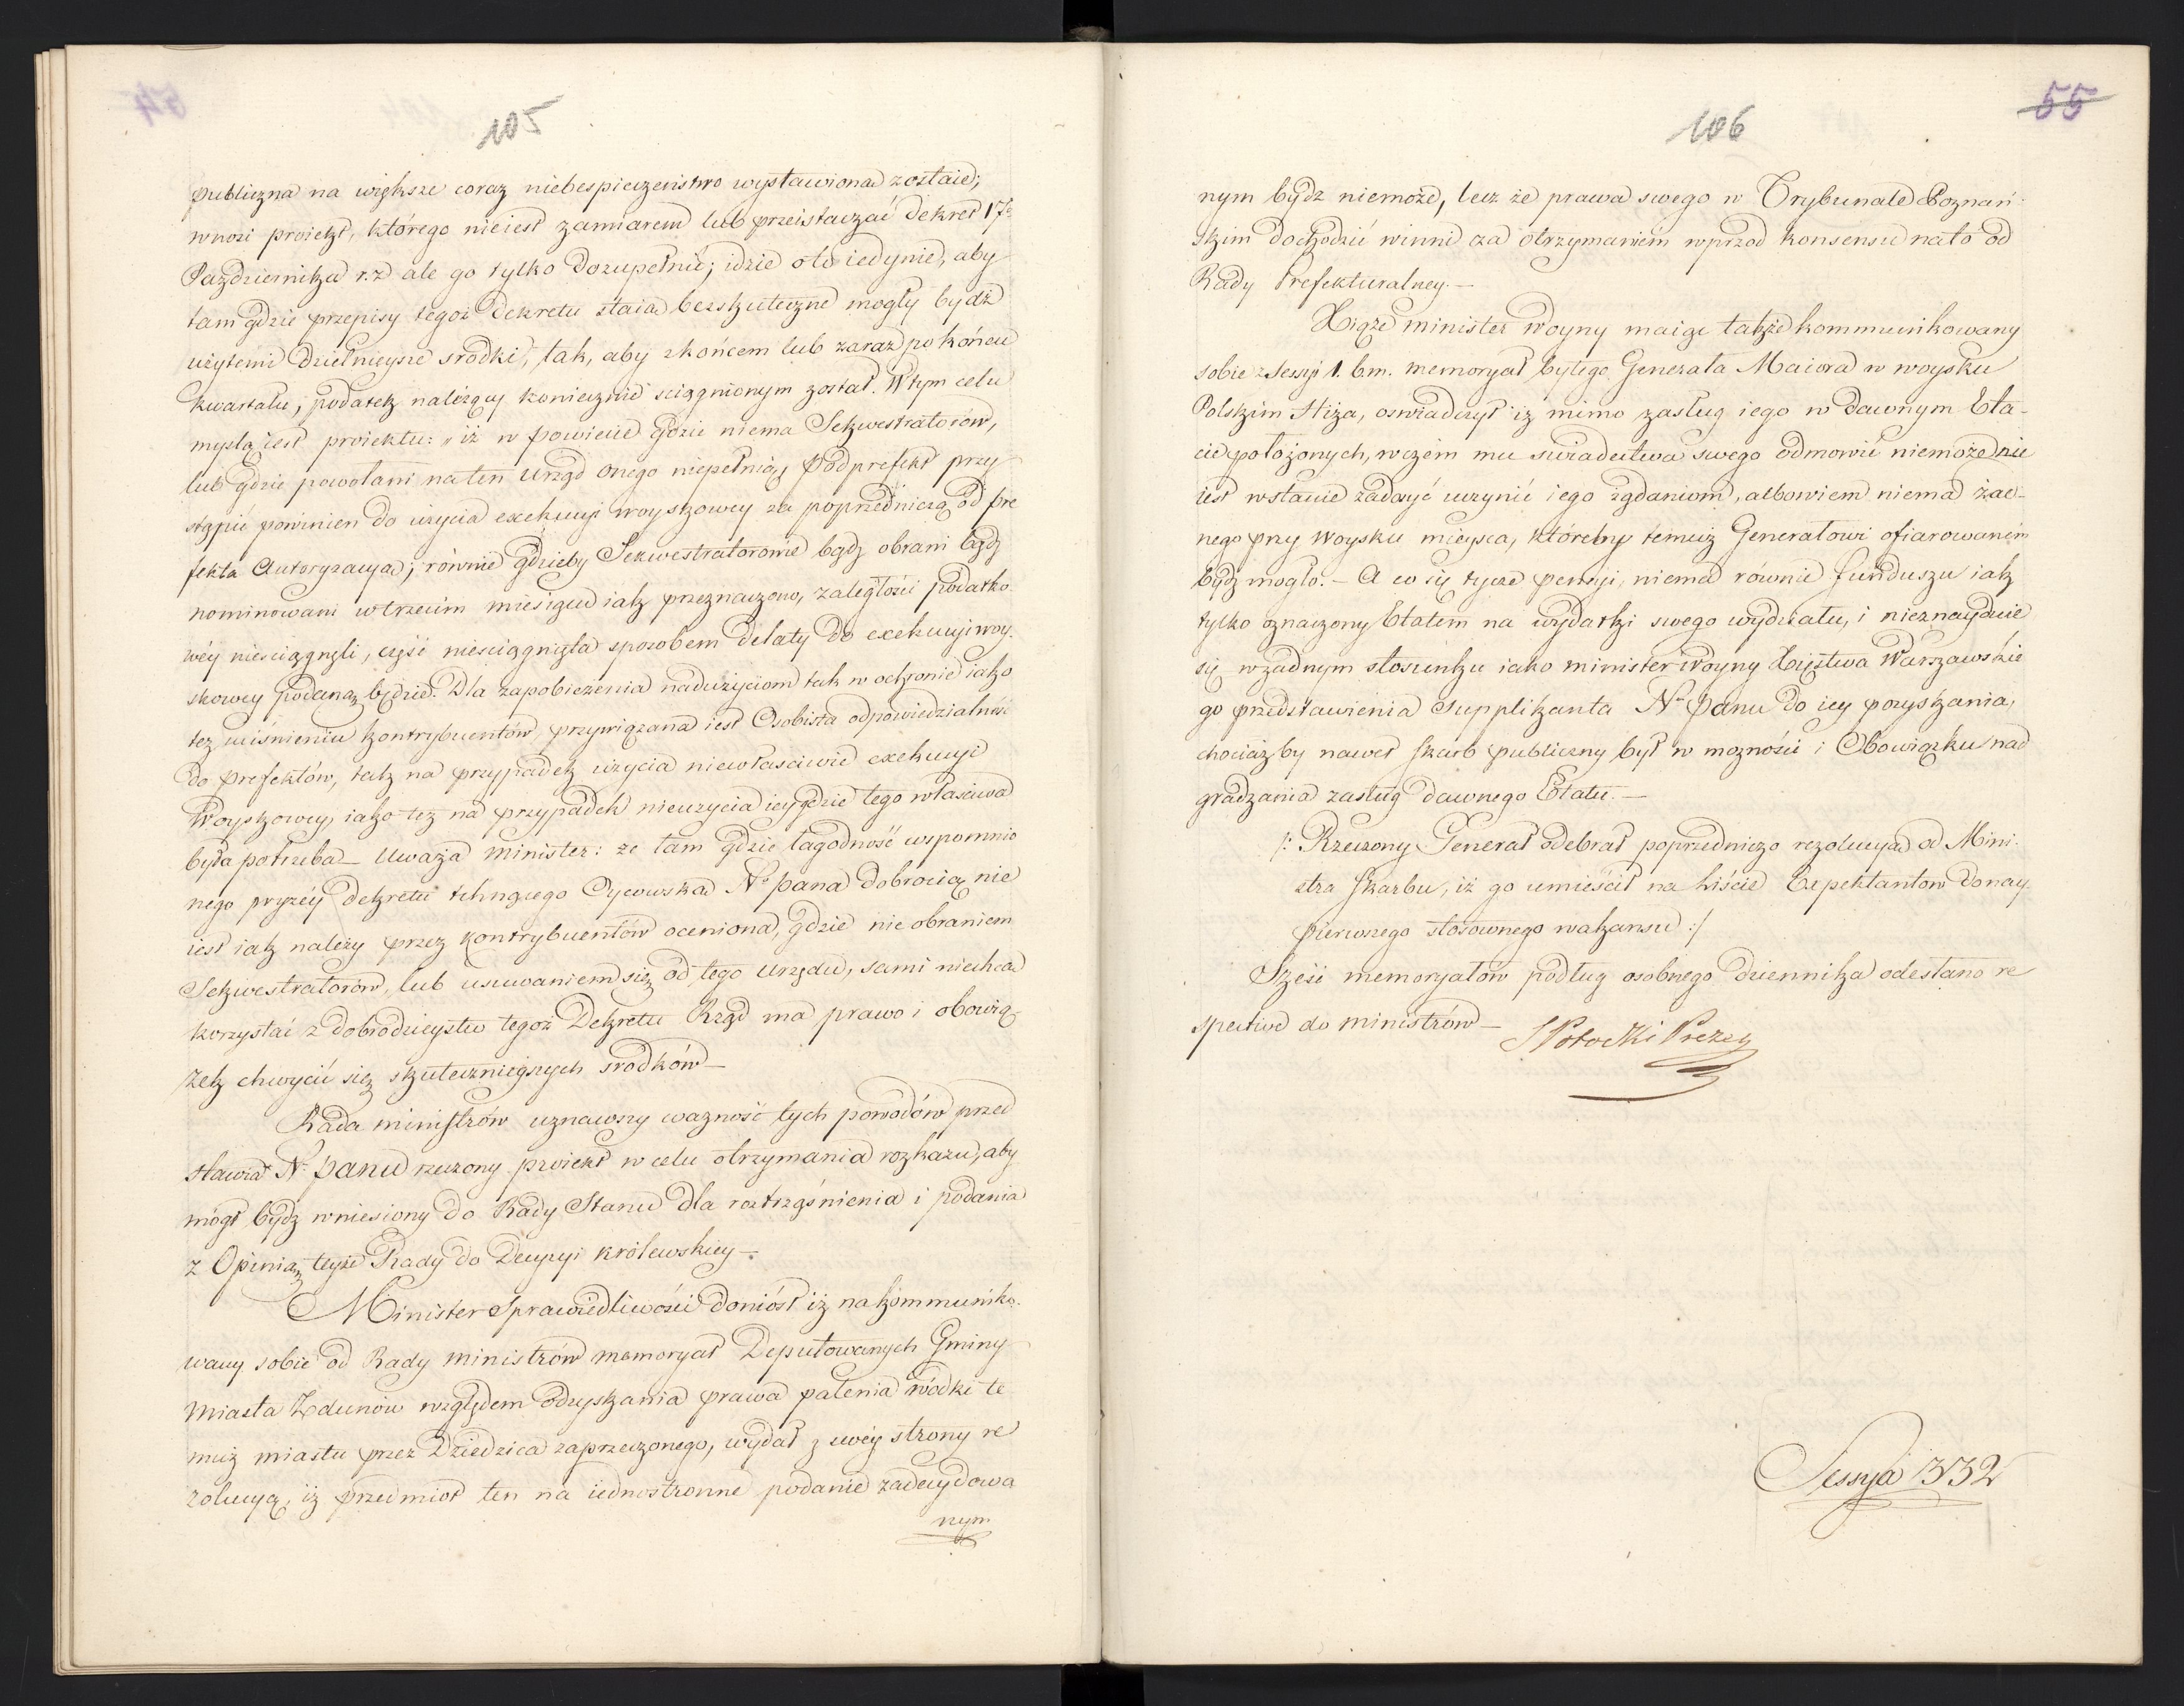 105
publiczna na większe coraz niebespieczeństwo wystawiona zostaie;
wnosi proiekt, którego nieiest zamiarem lub przeistaczać Dekret 17º
Pazdziernika r.z. ale go tylko Dozupełnić; idzie oto iedynie, aby
tam gdzie przepisy tegoż Dekretu staią bezskuteczne mogły bydź
użytemi dzielnieysze srodki, tak, aby zkońcem lub zaraz po końcu
kwartału, podatek należący koniecznie sciągnionym został. W tym celu
myslą iest proiektu: „iż w powiecie gdzie niema Sekwestratorów,
lub gdzie powołani na ten Urząd onego niepełnią, Podprefekt przy
stąpić powinien do użycia exekucyi woyskowey za poprzedniczą od Pre
fekta Autoryzacyą; równie gdzieby Sekwestratorowie bądź obrani bądź
nominowani w trzecim miesiącu iak przeznaczono, zaległości podatko
wéy niesciągnęli, część niesciągnięta sposobem delaty do exekucyi woy-
skowey podaną będzie. Dla zapobieżenia nadużyciom tak w ochronie iako
też uciśnieniu kontrybuentów, przywiązana iest Osobista odpowiedzialność
do prefektów, tak na przypadek użycia niewłaściwie exekucyi
Woyskowey, iako też na przypadek nieużycia iey gdzie tego właściwa
była potrzeba — Uważa Minister: że tam gdzie łagodność wspomnio
nego wyzéy Dekretu tchnącego Oycowską Nº Pana dobrocią nie
iest iak należy przez kontrybuentów oceniona, gdzie nie obraniem
Sekwestratorów, lub usuwaniem się od tego Urzędu, sami niechcą
korzystać z dobrodzieystw tegoż Dekretu Rząd ma prawo i obowią-
zek chwycić się skutecznieyszych srodków —
Rada ministrów uznawszy ważność tych powodów przed
stawia Nº Panu rzeczony proiekt w celu otrzymania rozkazu, aby
mógł bydź wniesiony do Rady Stanu dla roztrząśnienia i podania
z Opinią teyże Rady do Decyzyi królewskiey —
Minister Sprawiedliwości doniósł iż na kommuniko-
wany sobie od Rady ministrów memoryał Deputowanych Gminy
Miasta Zdunów względem odzyskania prawa palenia wódki te
muż miastu przez Dziedzica zaprzeczonego, wydał z swéy strony re
zolucyą, iż przedmiot ten na iednostronne podanie zadecydowa
nym
106
55
nym bydz niemoże, lecz że prawa swego w Trybunale Poznań-
skim dochodzić winni za otrzymaniem wprzod konsensu na to od
Rady Prefekturalney. —
Xiąże minister Woyny maiąc także kommunikowany
sobie z Sessyi 1. b.m. memoryał byłego Generała Maiora w woysku
Polskim Hiża, oswiadczył iż mimo zasług iego w dawnym Eta-
cie położonych, w czém mu swiadectwa swego odmowić niemoże nie
iest wstanie zadosyć uczynić iego żądaniom, albowiem niema żad-
nego przy Woysku mieysca, któreby temuż Generałowi ofiarowaném
bydź mogło. — A co się tycze pensyi, niema równie funduszu iak
tylko oznaczony Etatem na wydatki swego wydziału, i nieznayduie
się w żadnym stosunku iako minister Woyny Xięstwa Warszawskie
go przedstawienia supplikanta Nº Panu do iey pozyskania,
chociażby nawet skarb publiczny był w możności i Obowiązku nad
gradzania zasług dawnego Etatu. —
/: Rzeczony Generał odebrał poprzedniczo rezolucyą od Mini-
stra Skarbu, iż go umieścił na Liście Expektantów do nay-
pierwszego stosownego wakansu :/
Sześć memoryałów podług osobnego dziennika odesłano re
spective do ministrów —
S Potocki Prezes
Sessya 1332